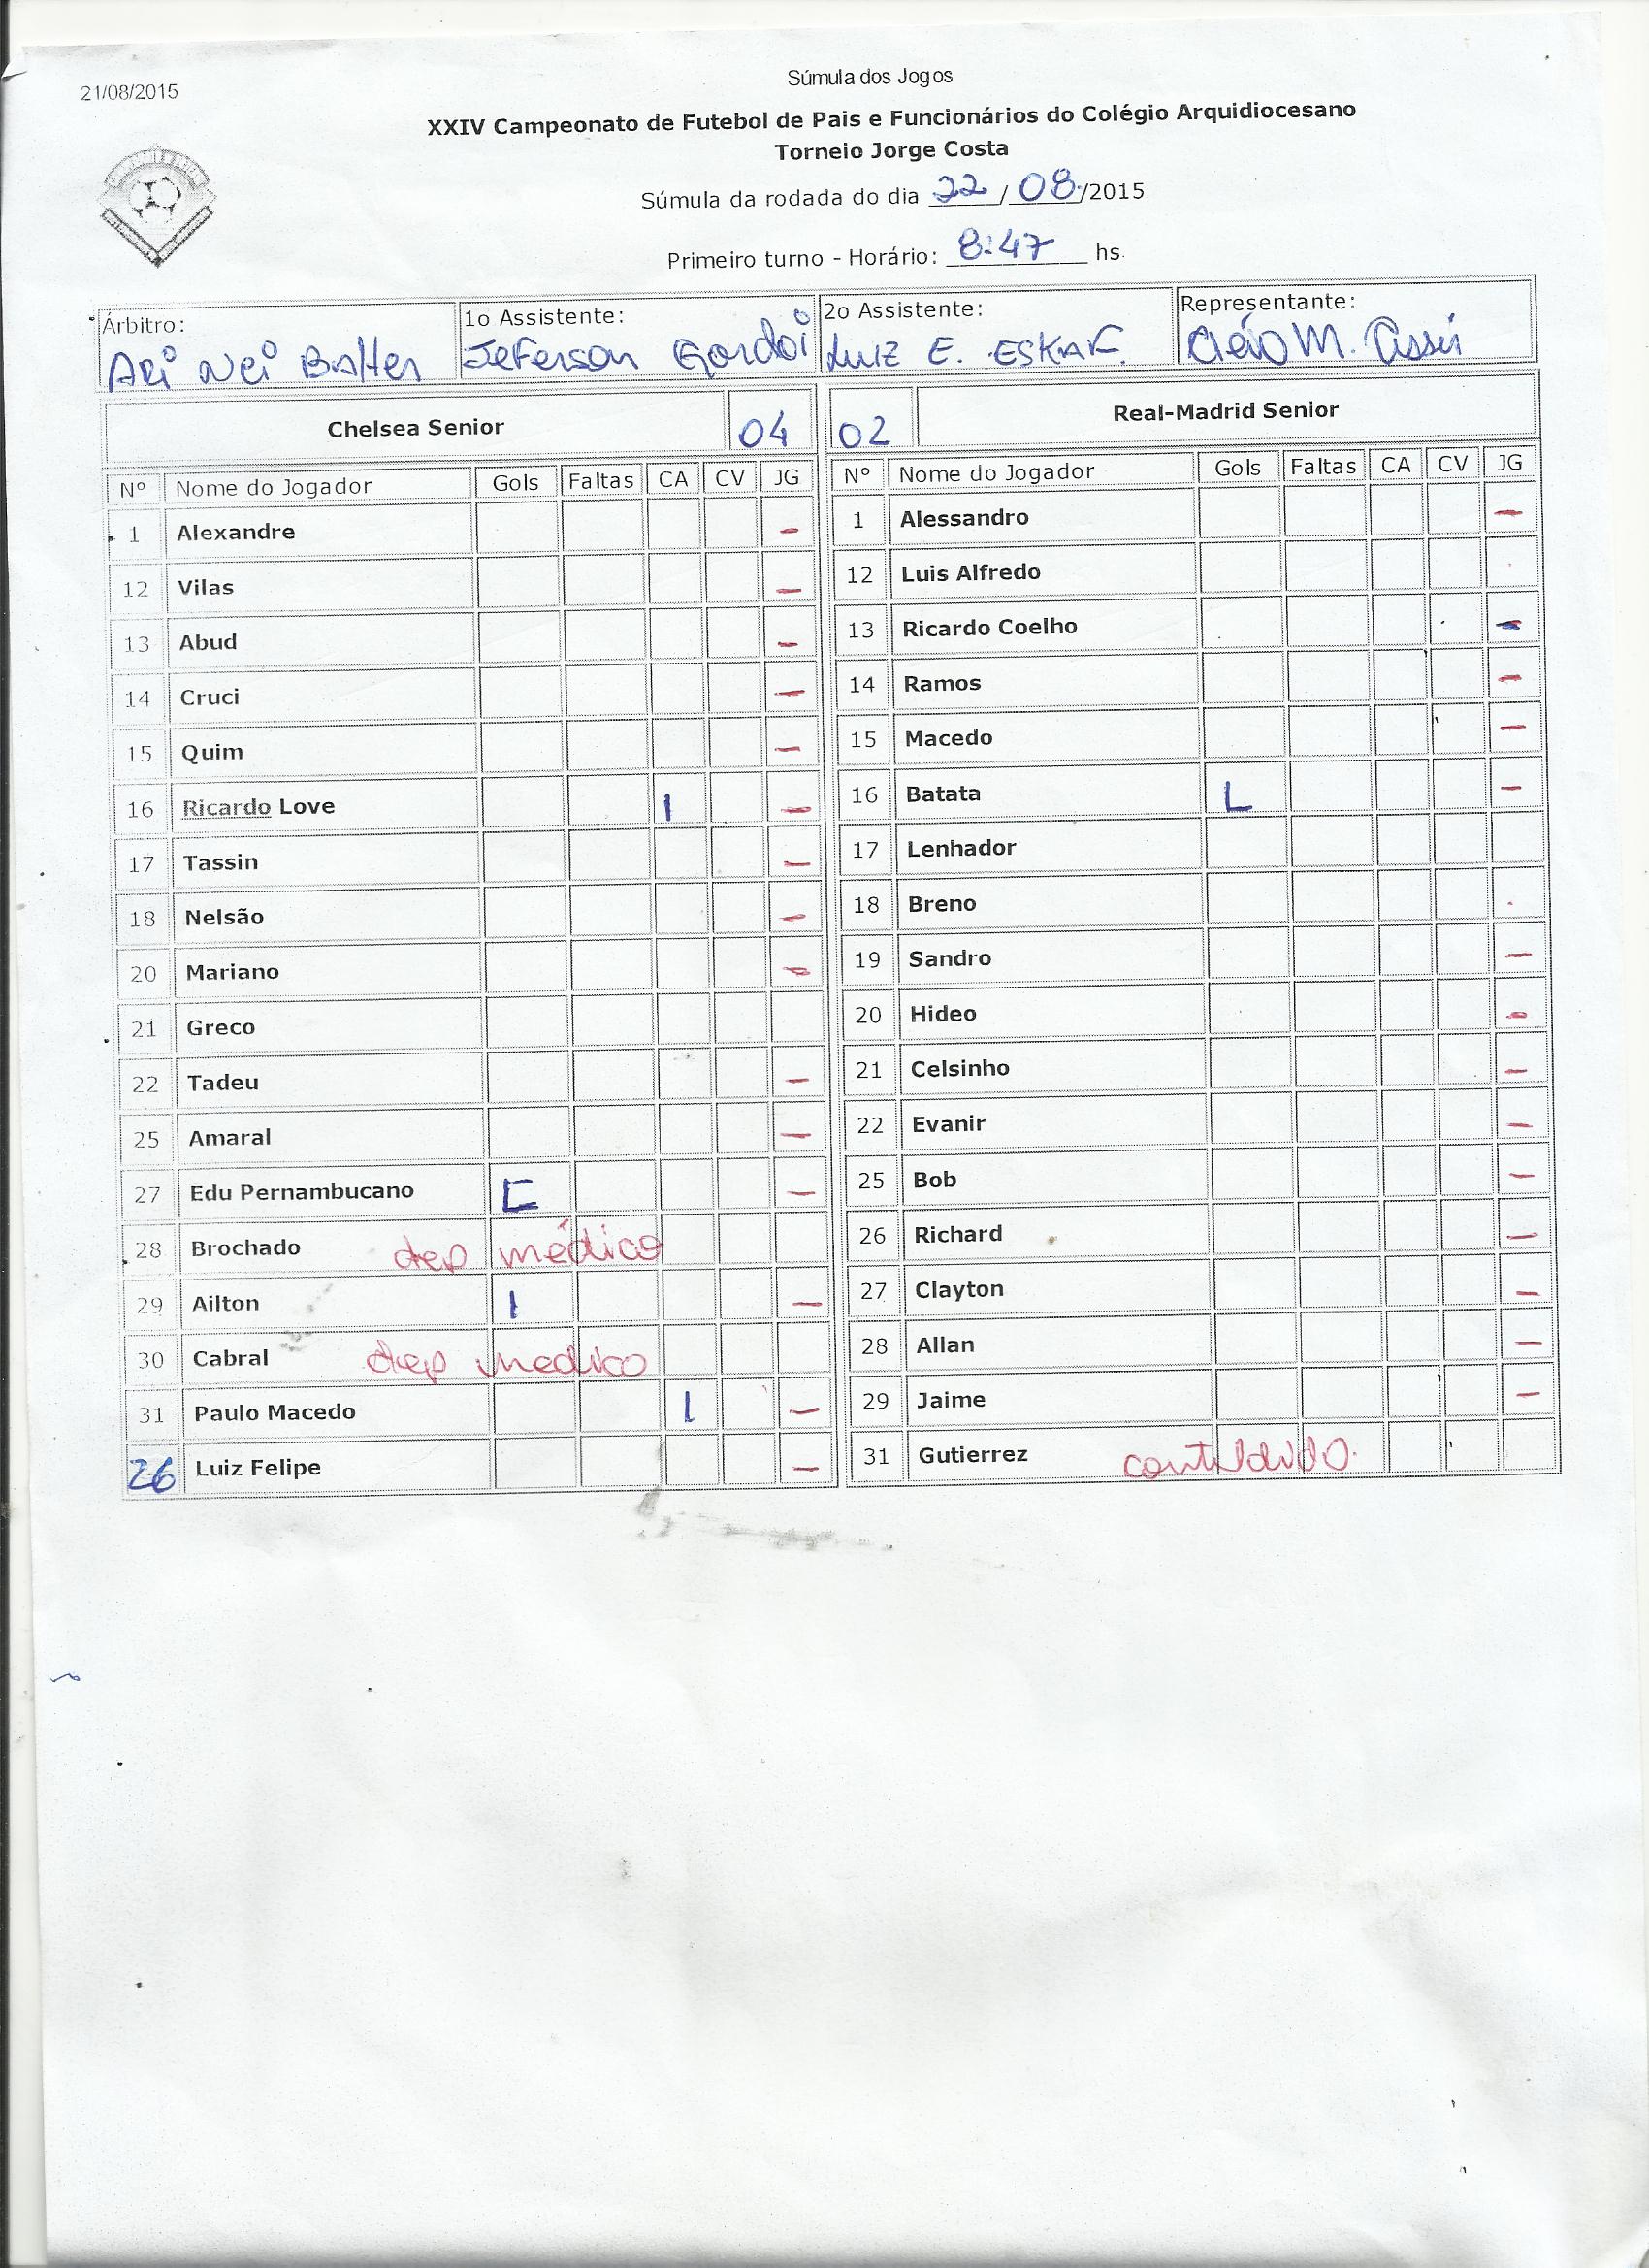 21/08/2015
Súmula dos Jogos
XXIV Campeonato de Futebol de Pais e Funcionários do Colégio Arquidiocesano
Torneio Jorge Costa
Súmula da rodada do dia 22/08/2015
Primeiro turno - Horário: 8:47 hs.
Árbitro: 1o Assistente: 2o Assistente: Representante:
Ari Nei Jeferson Luiz E. M. Assis
Chelsea Senior 04 02 Real-Madrid Senior
Nº Nome do Jogador Gols Faltas CA CV JG Nº Nome do Jogador Gols Faltas CA CV JG
1 Alexandre – 1 Alessandro –
12 Vilas – 12 Luis Alfredo
13 Abud – 13 Ricardo Coelho –
14 Cruci – 14 Ramos –
15 Quim – 15 Macedo –
16 Ricardo Love I – 16 Batata L –
17 Tassin – 17 Lenhador
18 Nelsão – 18 Breno
20 Mariano – 19 Sandro –
21 Greco 20 Hideo –
22 Tadeu – 21 Celsinho –
25 Amaral – 22 Evanir –
27 Edu Pernambucano – 25 Bob –
28 Brochado dep médico 26 Richard –
29 Ailton I – 27 Clayton –
30 Cabral dep medico 28 Allan –
31 Paulo Macedo I – 29 Jaime –
26 Luiz Felipe – 31 Gutierrez